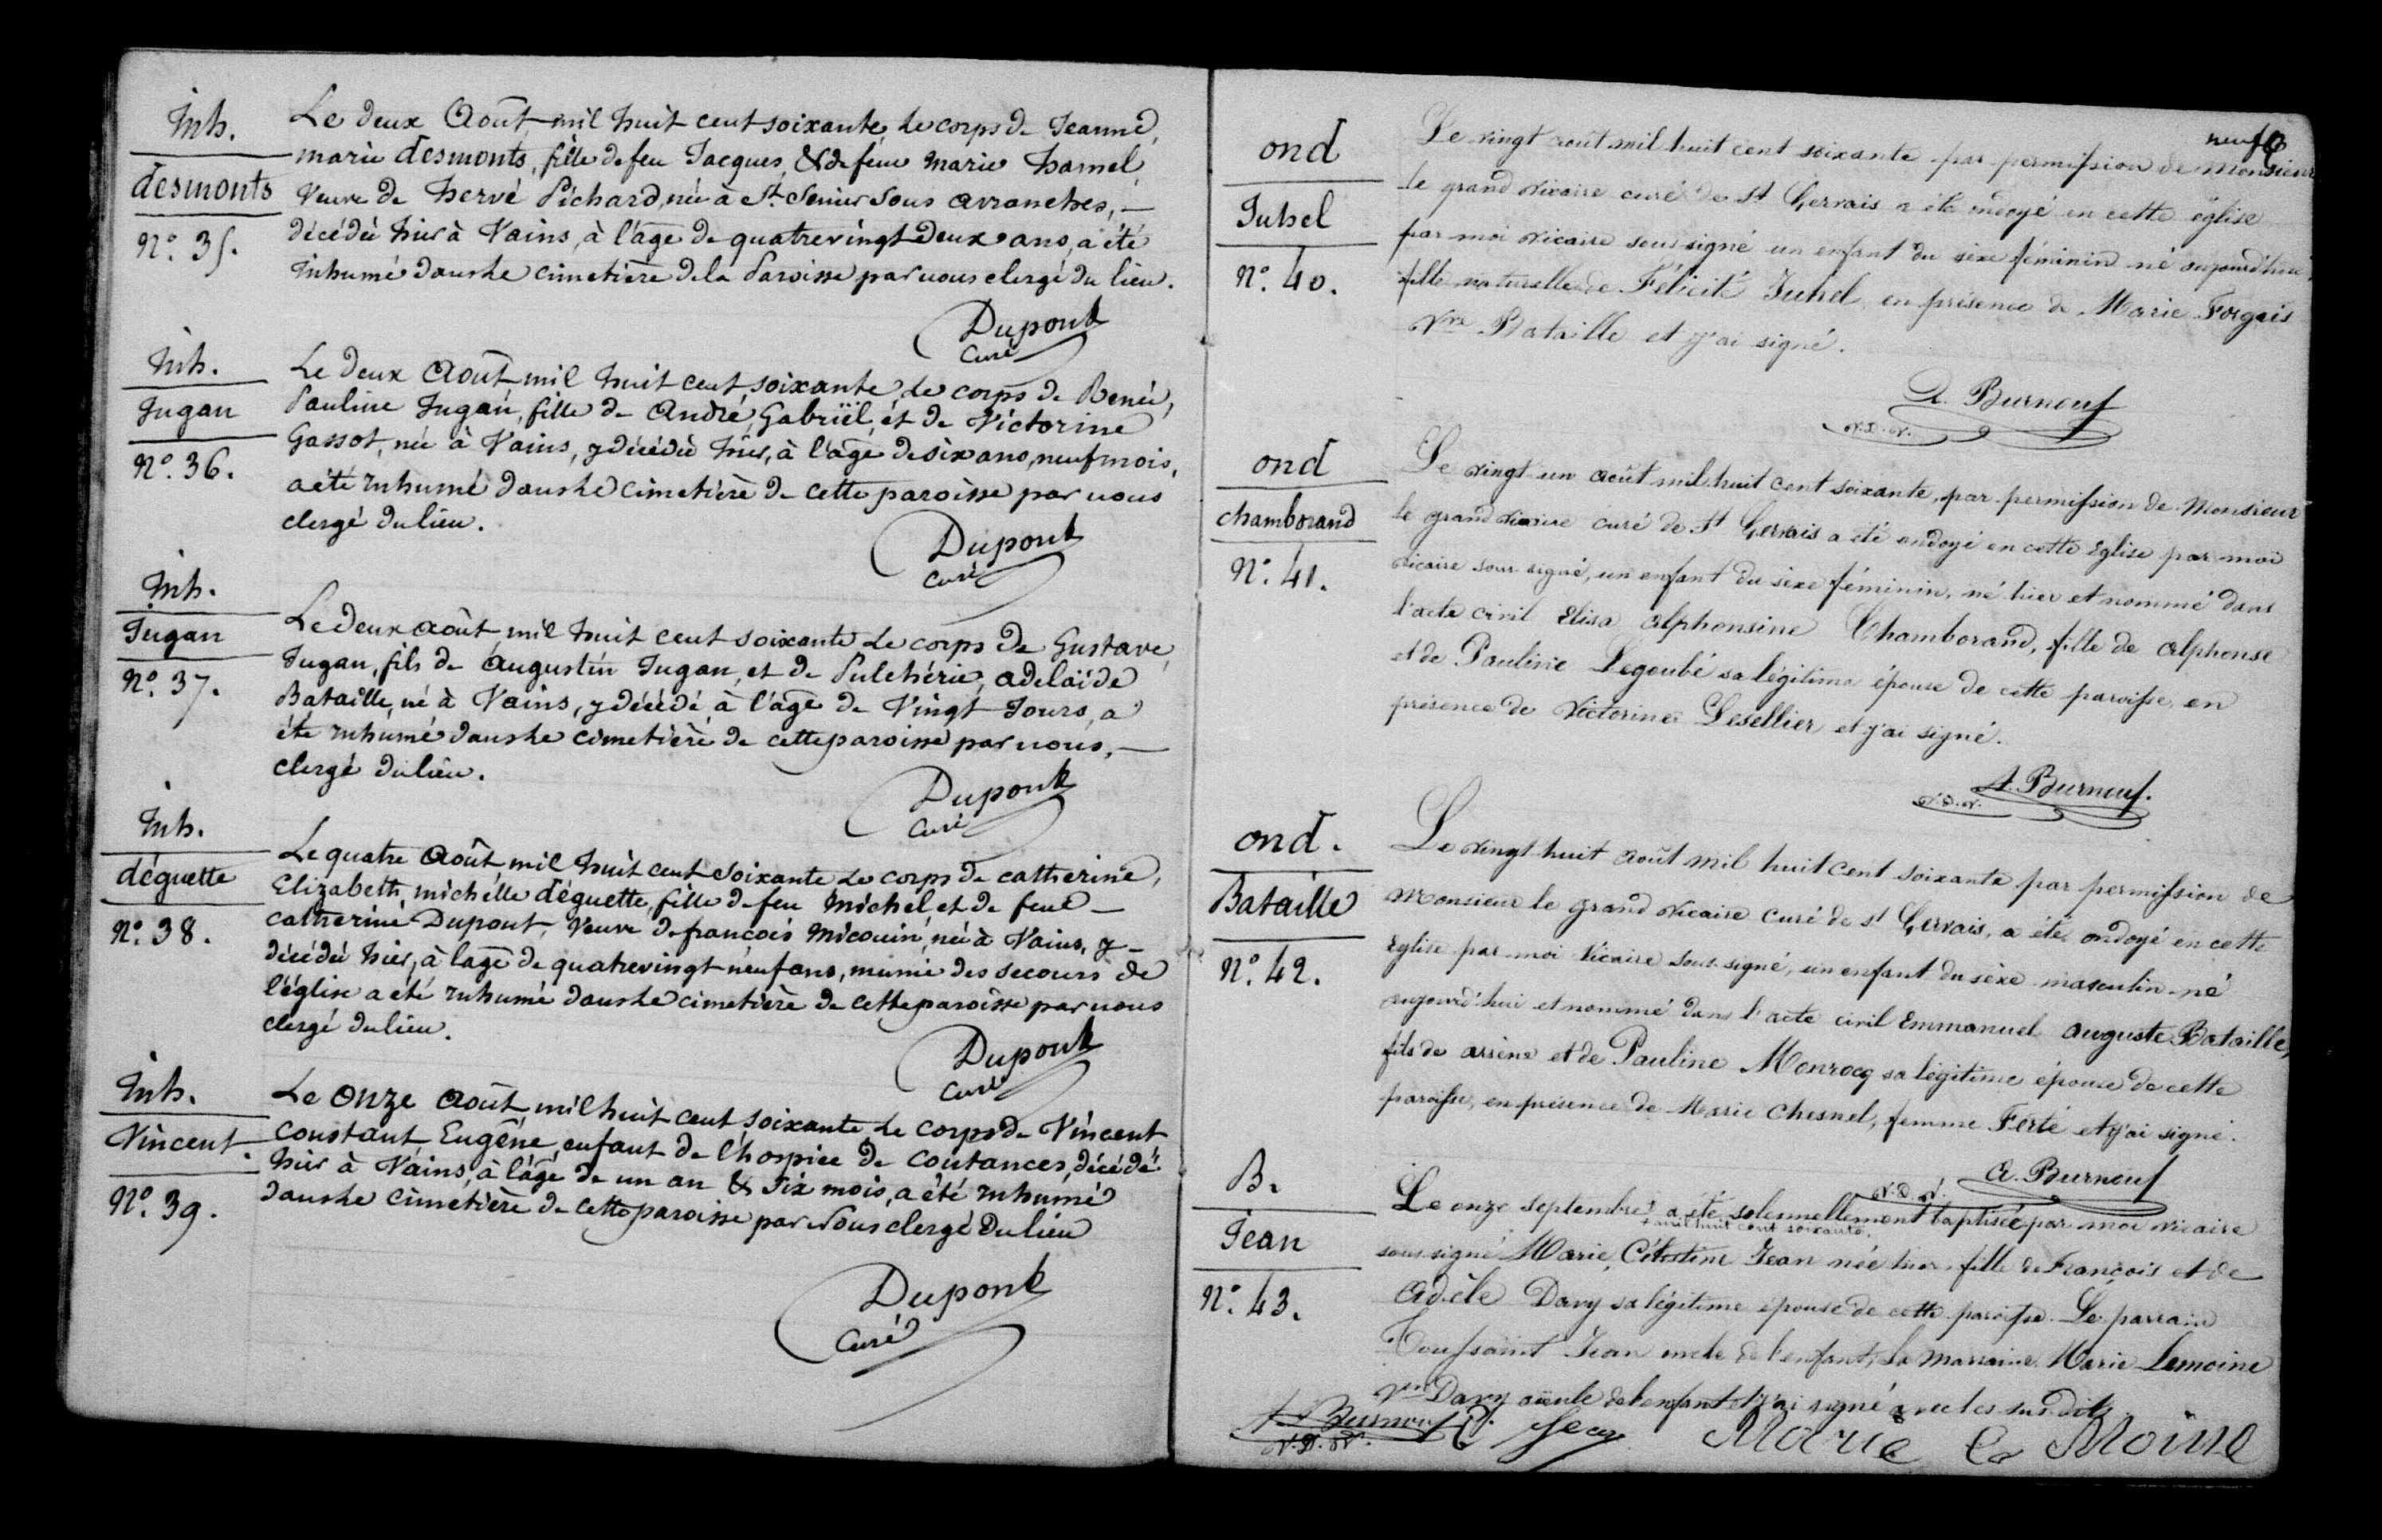 Inh.
desmonts
N°. 35.
Le deux Août mil huit cent soixante, le corps de Jeanne,
marie desmonts, fille de feu Jacques, & de feue Marie hamel,
veuve de hervé Péchard, née à St. Senier sous avranches, —
décédée hier à Vains, à l'âge de quatrevingt deux ans, a été
inhumé dans le cimetière de la Paroisse par nous clergé du lieu.
Dupont
Curé
Inh.
Jugan
N°. 36.
Le deux Août mil huit cent soixante, le corps de Renée,
Pauline Jugan, fille de André, Gabriël, et de Victorine
Gassot, née à Vains, y décédée hier, à l'âge de six ans, neuf mois,
a été inhumé dans le cimetière de cette paroisse par nous
clergé du lieu.
Dupont
Curé
Inh.
Jugan
N°. 37.
Le deux août mil huit cent soixante le corps de Gustave,
Jugan, fils de Augustin Jugan, et de Pulchérie, adelaïde
Bataille, né à Vains, y décédé à l'âge de Vingt Jours, a
été inhumé dans le cimetière de cette paroisse par nous, —
clergé du lieu.
Dupont
Curé
Inh.
déguette
N°. 38.
Le quatre Août mil huit cent soixante le corps de catherine,
Elizabeth, michelle déguette, fille de feu Michel et de feue —
catherine Dupont, Veuve de françois Micouin, née à Vains, y —
décédée hier, à l'age de quatrevingt neuf ans, munie des secours de
l'église a été inhumé dans le cimetière de cette paroisse par nous
clergé du lieu.
Dupont
Curé
Inh.
Vincent.
N°. 39.
Le onze Août mil huit cent soixante le corps de Vincent
constant Eugêne, enfant de l'hospice de coutances, décédé
hier à Vains, à l'âge de un an & six mois, a été inhumé
dans le cimetière de cette paroisse par Nous clergé du lieu
Dupont
Curé
neuf
ond
Juhel
N°. 40.
Le vingt août mil huit cent soixante par permission de Monsieur
le grand vicaire curé de St Gervais a été ondoyé en cette église
par moi vicaire sous signé un enfant du sèxe féminin né aujourd'hui,
fille naturelle de Félicité Juhel en présence de Marie Forgais
Vve Bataille et j'ai signé.
A. Burnouf
V. D. V.
ond
chamborand
N°. 41.
Le vingt un août mil huit cent soixante, par permission de Monsieur
le grand vicaire curé de St Gervais a été ondoyé en cette Eglise par moi
vicaire sous signé, un enfant du sèxe féminin, né hier et nommé dans
l'acte civil Elisa Alphonsine Chamborand, fille de Alphonse
et de Pauline Legoubé sa légitime épouse de cette paroisse, en
présence de Victorine Lesellier et j'ai signé.
A. Burnouf.
V. D. V.
ond.
Bataille
N°. 42.
Le vingt huit août mil huit cent soixante par permission de
Monsieur le grand vicaire curé de st Gervais, a été ondoyé en cette
Eglise par moi Vicaire sous signé, un enfant du sèxe masculin né
aujourd'hui et nommé dans l'acte civil Emmanuel auguste Bataille,
fils de arsène et de Pauline Monrocq sa légitime épouse de cette
paroisse, en présence de Marie Chesnel, femme Ferté et j'ai signé.
A. Burnouf
V. D. V.
B.
Jean
N°. 43.
Le onze septembre a été solennellement baptisée par moi vicaire
+ mil huit cent soixante.
sous signé Marie, Célestine Jean née hier fille de François et de
Adèle Davy sa légitime épouse de cette paroisse. Le parrain
Toussaint Jean oncle de l'enfant, la marraine Marie Lemoine
Vve Davy aïeule de l'enfant et j'ai signé avec les sus dits.
A. Burnouf
V. D. V.
Marie Le Moine